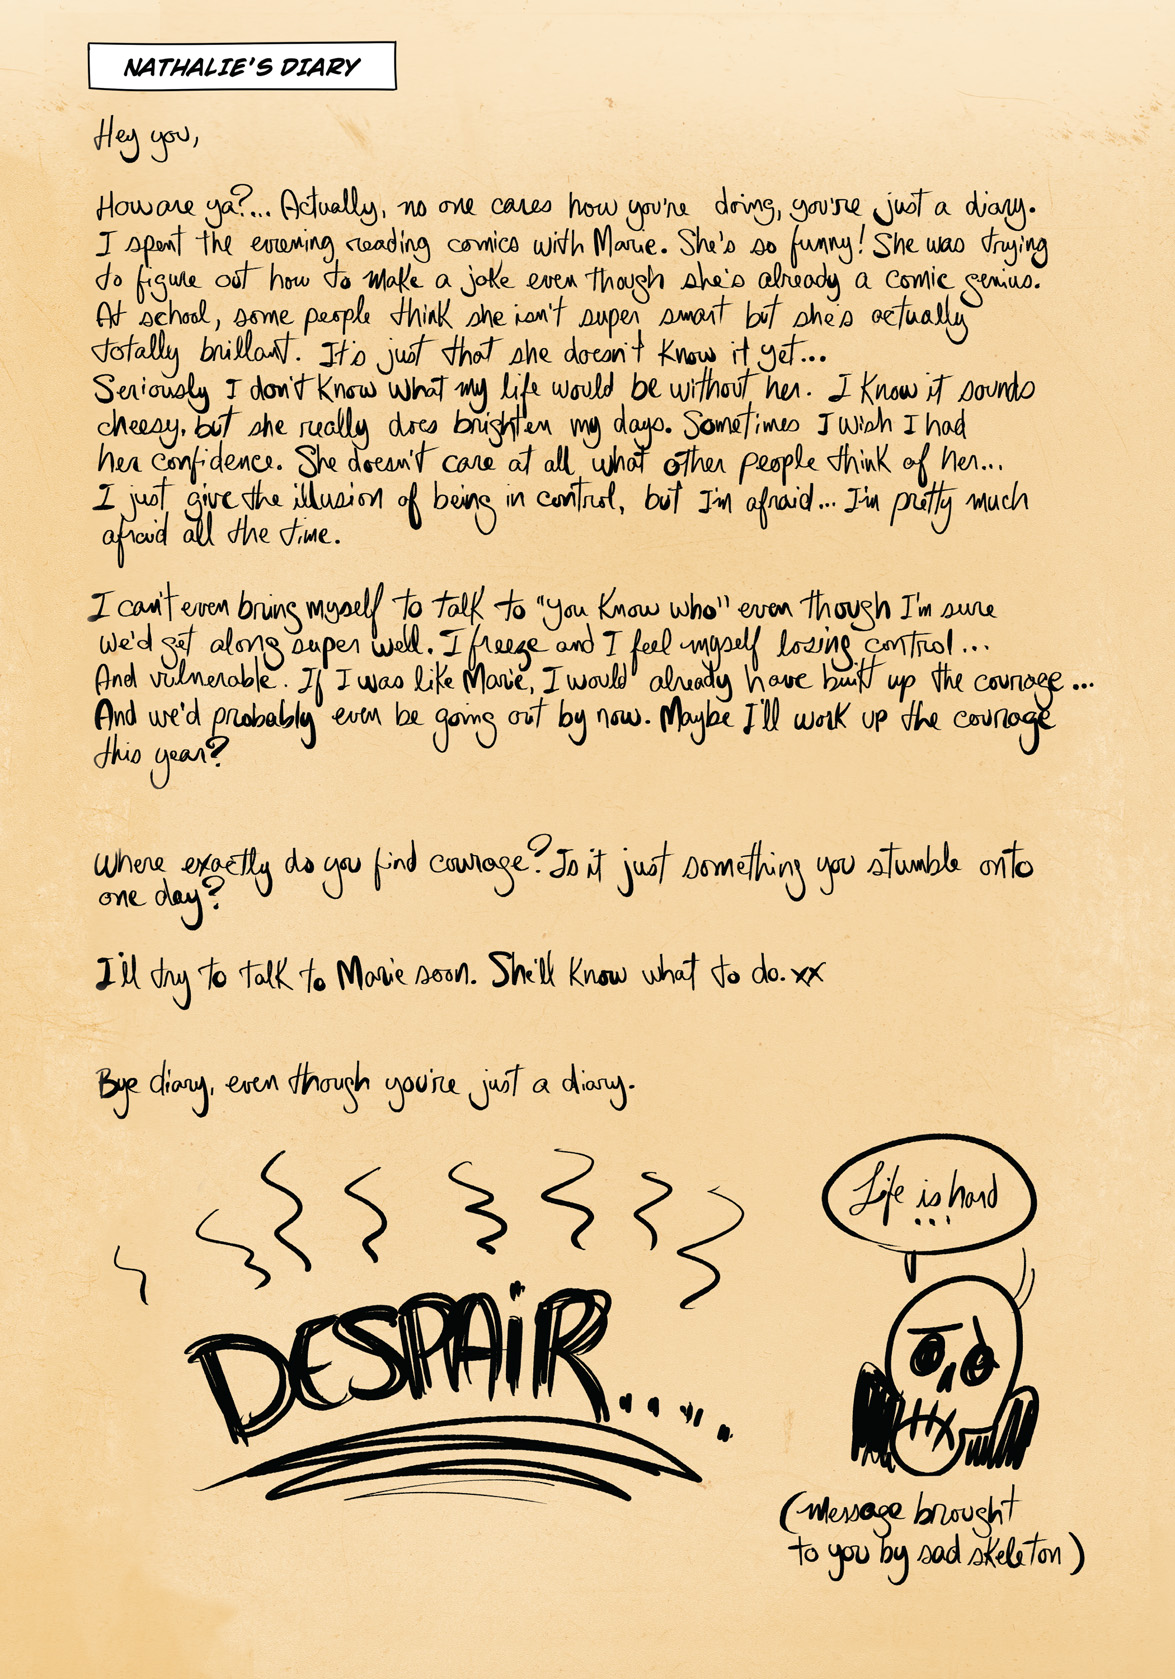 NATHALIE'S DIARY
Hey you,
How are ya?... Actually, no one cares how you're doing, you're just a diary.
I spent the evening reading comics with Marie. She's so funny! She was trying
to figure out how to make a joke even though she's already a comic genius.
At school, some people think she isn't super smart but she's actually
totally brillant. It's just that she doesn't know it yet...
Seriously I don't know what my life would be without her. I know it sounds
cheesy, but she really does brighten my days. Sometimes I wish I had
her confidence. She doesn't care at all what other people think of her...
I just give the illusion of being in control, but I'm afraid... I'm pretty much
afraid all the time.
I can't even bring myself to talk to "you know who" even though I'm sure
we'd get along super well. I freeze and I feel myself losing control...
And vulnerable. If I was like Marie, I would already have built up the courage...
And we'd probably even be going out by now. Maybe I'll work up the courage
this year?
Where exactly do you find courage? Is it just something you stumble onto
one day?
I'll try to talk to Marie soon. She'll know what to do. xx
Bye diary, even though you're just a diary.
Life is hard
...
DESPAIR....
(message brought
to you by sad skeleton)